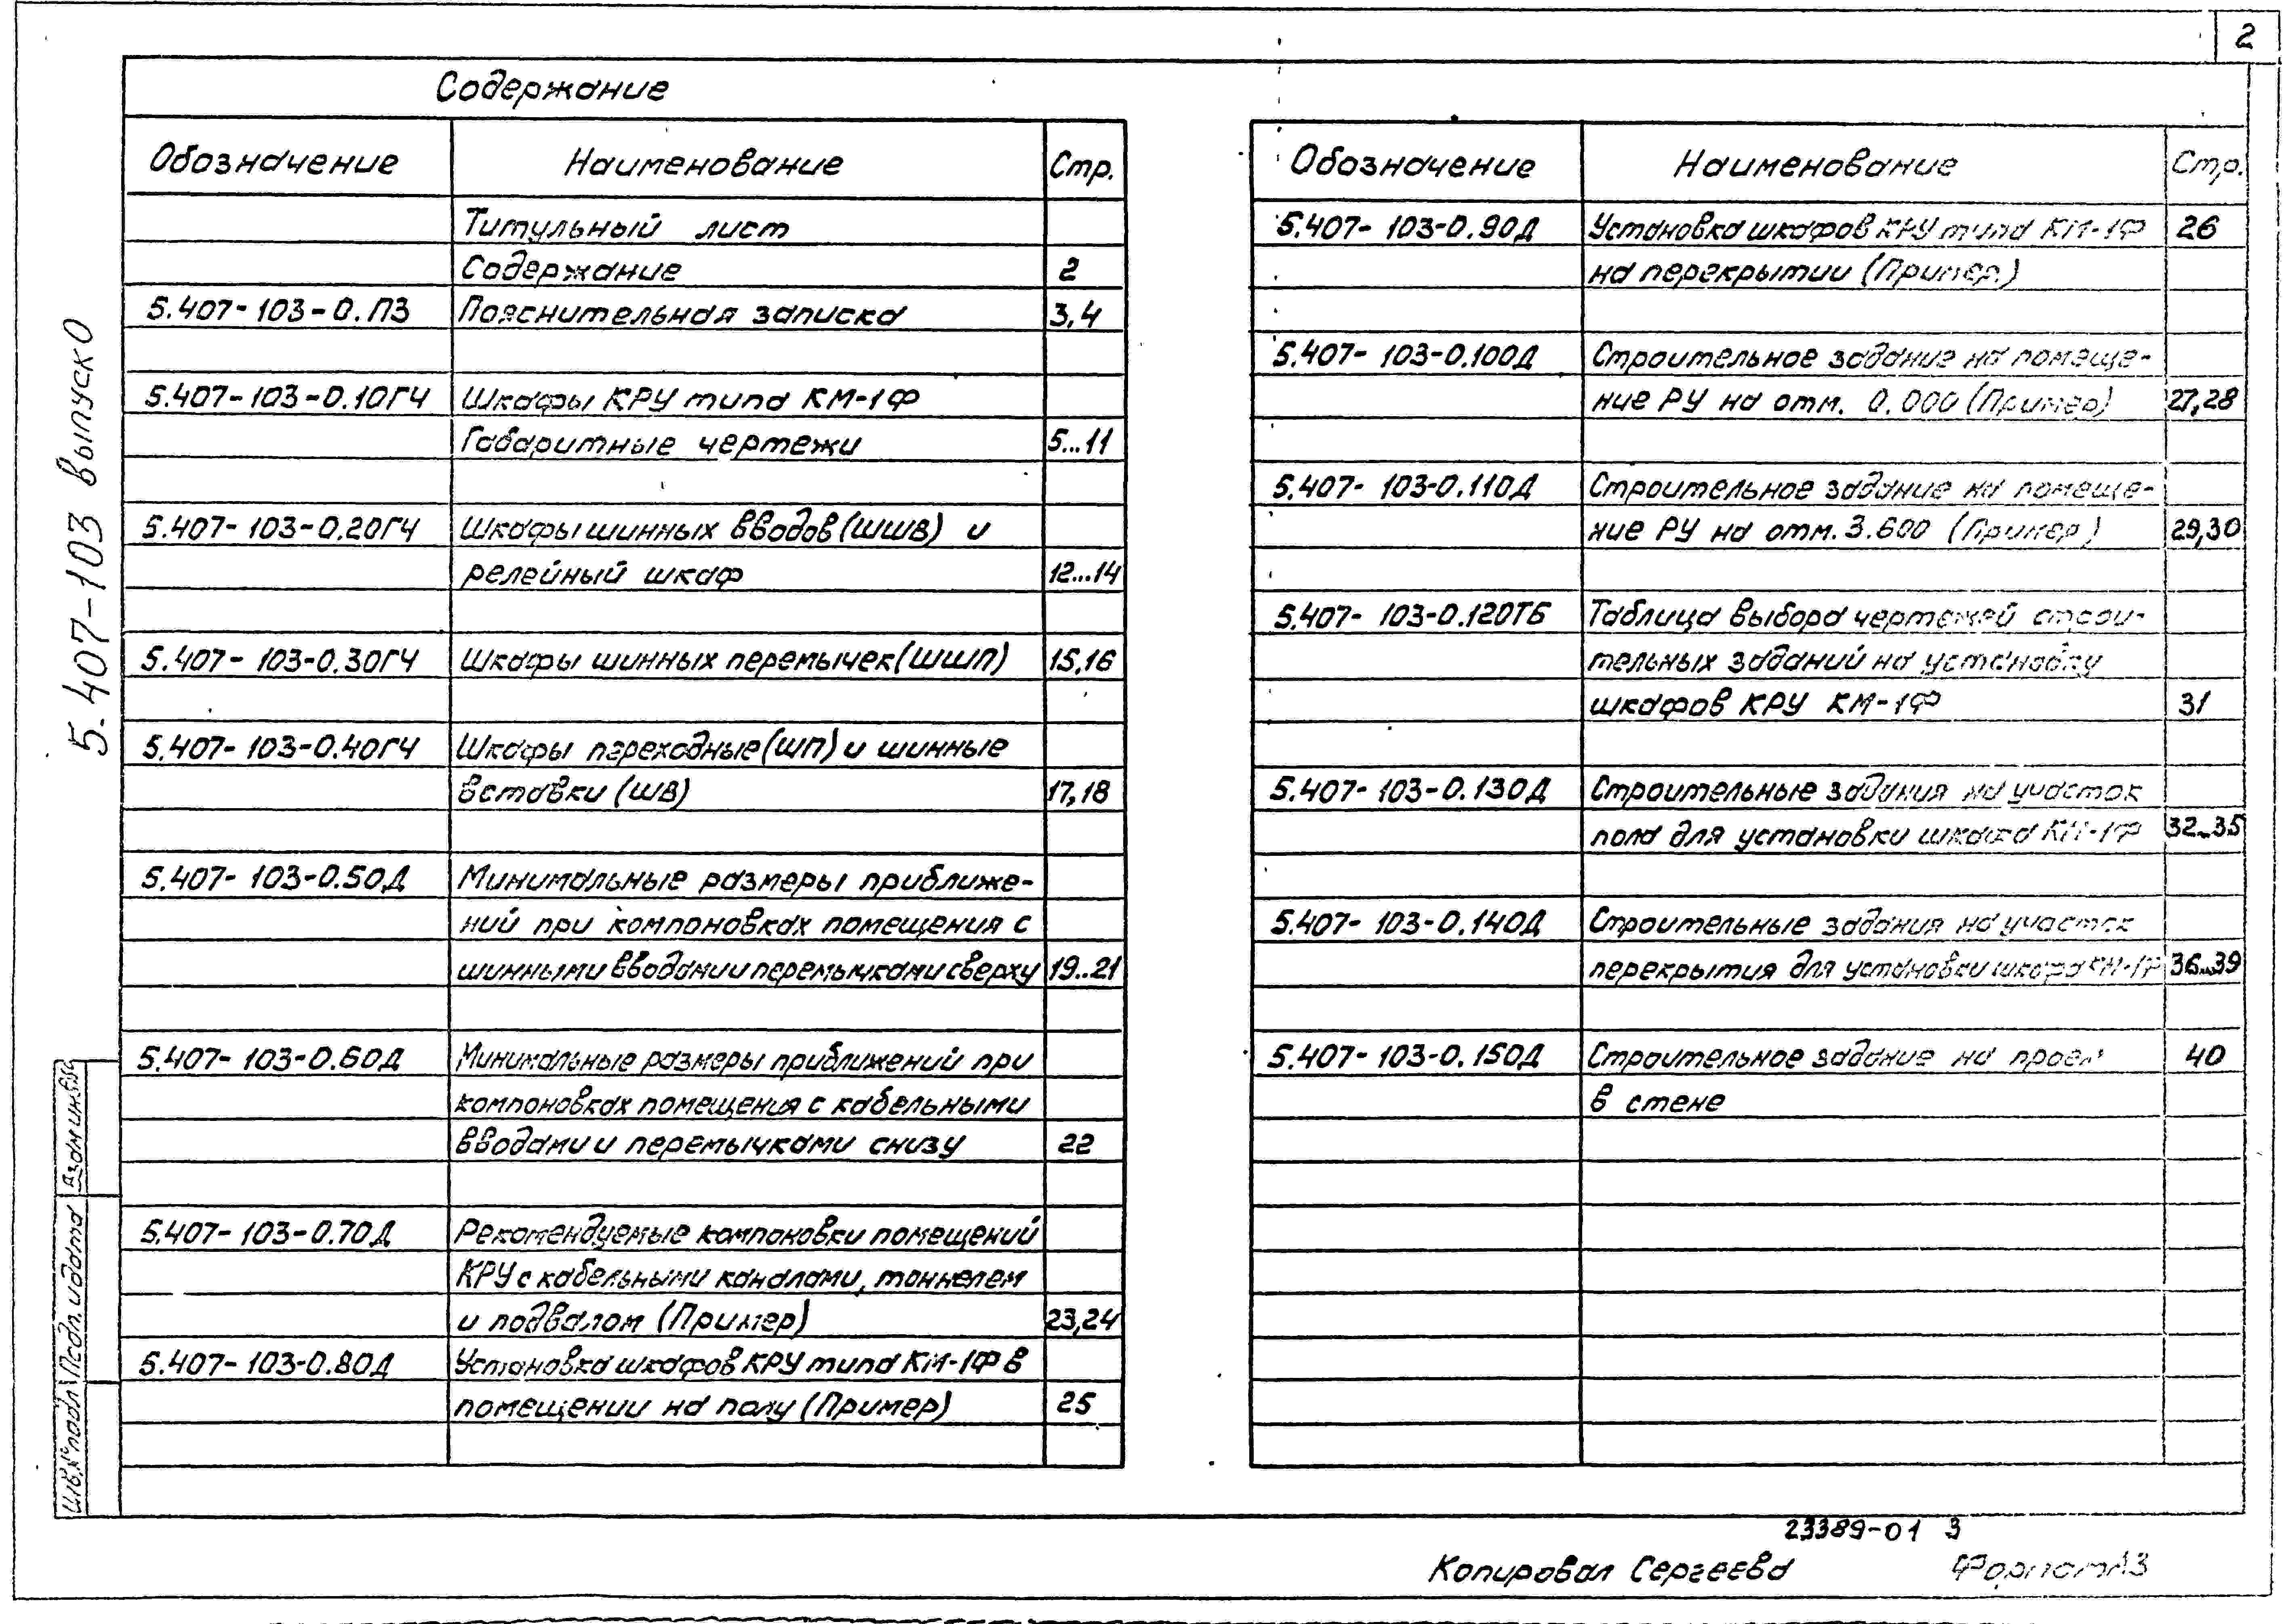 2
Содержание
Обозначение Наименование Стр.
Титульный лист
Содержание 2
5.407-103-0.ПЗ Пояснительная записка 3,4
5.407-103-0.10ГЧ Шкафы КРУ типа КМ-1Ф
Габаритные чертежи 5...11
5.407-103-0.20ГЧ Шкафы шинных вводов (ШШВ) и
релейный шкаф 12...14
5.407-103-0.30ГЧ Шкафы шинных перемычек (ШШП) 15,16
5.407-103-0.40ГЧ Шкафы переходные (ШП) и шинные
вставки (ШВ) 17,18
5.407-103-0.50Д Минимальные размеры приближе-
ний при компоновках помещения с
шинными вводами и перемычками сверху 19..21
5.407-103-0.60Д Минимальные размеры приближений при
компоновках помещения с кабельными
вводами и перемычками снизу 22
5.407-103-0.70Д Рекомендуемые компоновки помещений
КРУ с кабельными каналами, тоннелем
и подвалом (Пример) 23,24
5.407-103-0.80Д Установка шкафов КРУ типа КМ-1Ф в
помещении на полу (Пример) 25
Обозначение Наименование Стр.
5.407-103-0.90Д Установка шкафов КРУ типа КМ-1Ф 26
на перекрытии (Пример)
5.407-103-0.100Д Строительное задание на помеще-
ние РУ на отм. 0.000 (Пример) 27,28
5.407-103-0.110Д Строительное задание на помеще-
ние РУ на отм. 3.600 (Пример) 29,30
5.407-103-0.120ТБ Таблица выбора чертежей строи-
тельных заданий на установку
шкафов КРУ КМ-1Ф 31
5.407-103-0.130Д Строительные задания на участок
пола для установки шкафа КМ-1Ф 32...35
5.407-103-0.140Д Строительные задания на участок
перекрытия для установки шкафа КМ-1Ф 36...39
5.407-103-0.150Д Строительное задание на проем 40
в стене
5.407-103 выпуск 0
Взам инв.№
Подп. и дата
Инв. № подл
23389-01 3
Копировал Сергеева Формат А3